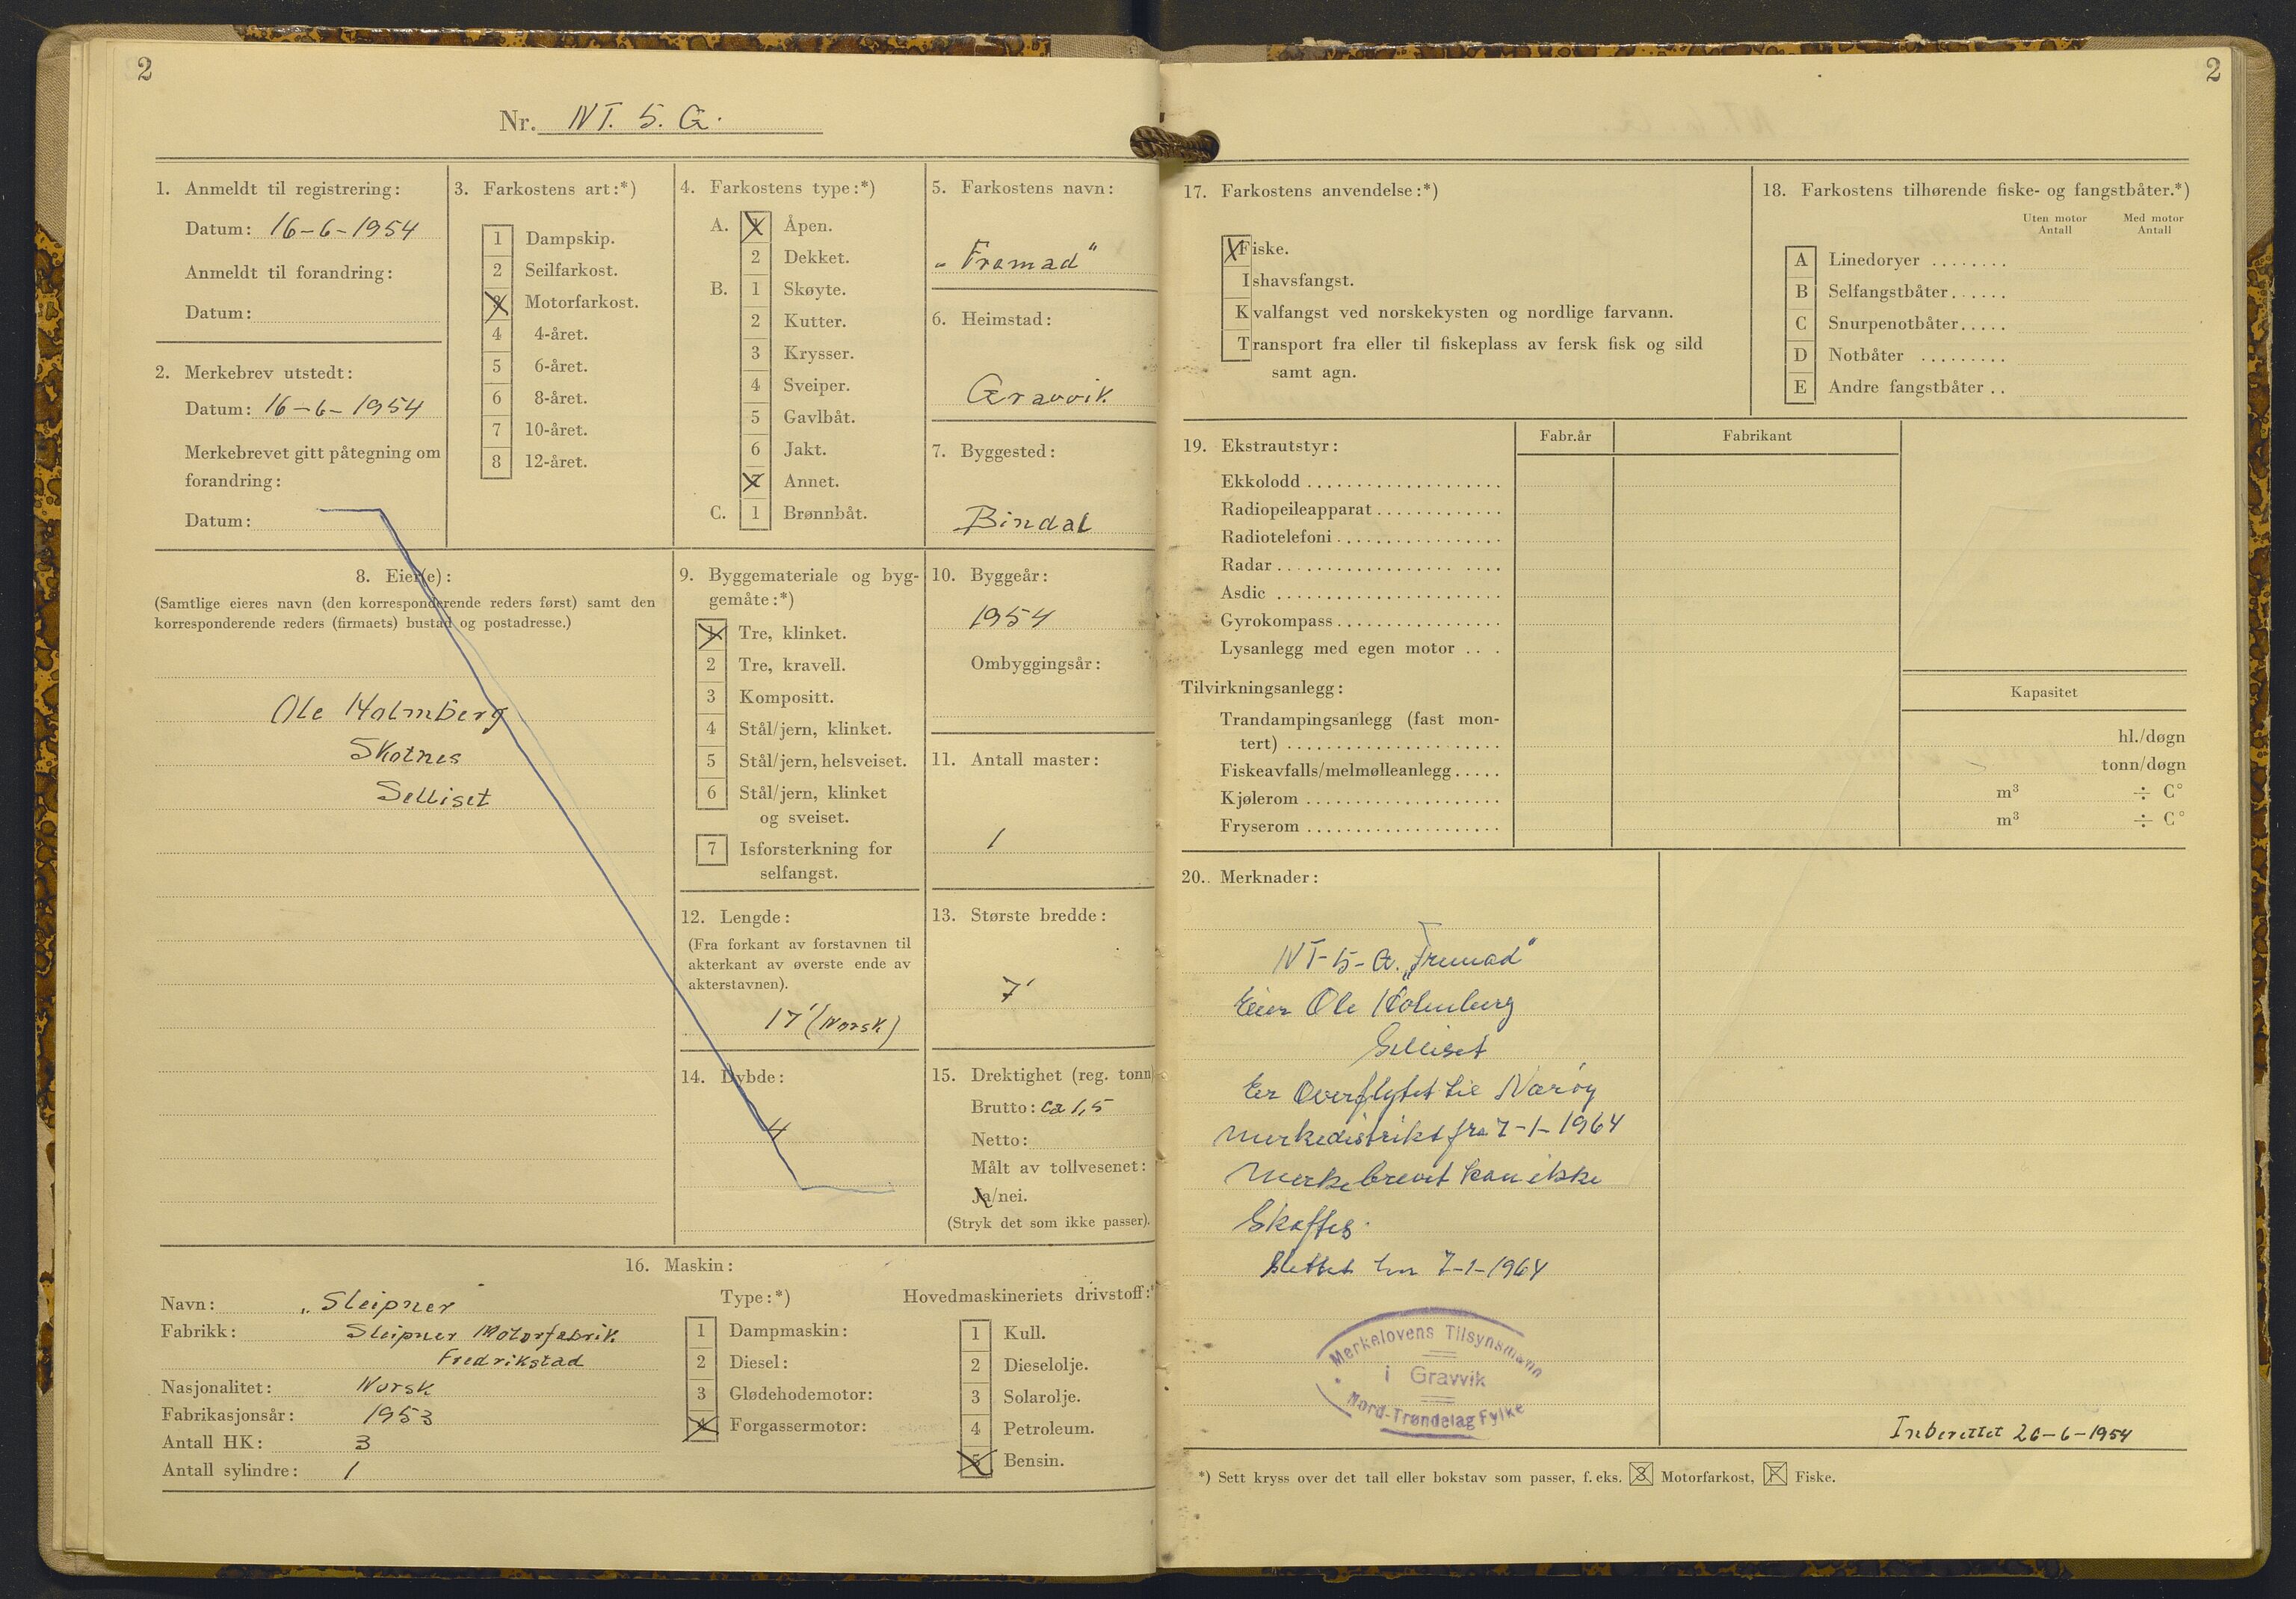 2
Nr. NT. 5. G.
1. Anmeldt til registrering:
Datum: 16-6-1954
Anmeldt til forandring:
Datum:
2. Merkebrev utstedt:
Datum: 16-6-1954
Merkebrevet gitt påtegning om
forandring:
Datum:
3. Farkostens art:*)
1 Dampskip.
2 Seilfarkost.
3 Motorfarkost.
4 4-året.
5 6-året.
6 8-året.
7 10-året.
8 12-året.
4. Farkostens type:*)
A. 1 Åpen.
2 Dekket.
B. 1 Skøyte.
2 Kutter.
3 Krysser.
4 Sveiper.
5 Gavlbåt.
6 Jakt.
7 Annet.
C. 1 Brønnbåt.
5. Farkostens navn:
„Framad"
6. Heimstad:
Gravvik
7. Byggested:
Bindal
8. Eier(e):
(Samtlige eieres navn (den korresponderende reders først) samt den
korresponderende reders (firmaets) bustad og postadresse.)
Ole Holmberg
Skotnes
Selliset
9. Byggemateriale og byg-
gemåte:*)
1 Tre, klinket.
2 Tre, kravell.
3 Kompositt.
4 Stål/jern, klinket.
5 Stål/jern, helsveiset.
6 Stål/jern, klinket
og sveiset.
7 Isforsterkning for
selfangst.
10. Byggeår:
1954
Ombyggingsår:
11. Antall master:
1
12. Lengde:
(Fra forkant av forstavnen til
akterkant av øverste ende av
akterstavnen).
17' (Norsk)
13. Største bredde:
7'
14. Dybde:
4
15. Drektighet (reg. tonn)
Brutto: ca 1,5
Netto:
Målt av tollvesenet:
Ja/nei.
(Stryk det som ikke passer).
16. Maskin:
Navn: „Sleipner"
Fabrikk: Sleipner Motorfabrik
Fredrikstad
Nasjonalitet: Norsk
Fabrikasjonsår: 1953
Antall HK: 3
Antall sylindre: 1
Type:*)
1 Dampmaskin:
2 Diesel:
3 Glødehodemotor:
4 Forgassermotor:
Hovedmaskineriets drivstoff:*
1 Kull.
2 Dieselolje.
3 Solarolje.
4 Petroleum.
5 Bensin.
2
17. Farkostens anvendelse:*)
Fiske.
Ishavsfangst.
Kvalfangst ved norskekysten og nordlige farvann.
Transport fra eller til fiskeplass av fersk fisk og sild
samt agn.
18. Farkostens tilhørende fiske- og fangstbåter.*)
Uten motor Med motor
Antall Antall
A Linedoryer ........
B Selfangstbåter......
C Snurpenotbåter.....
D Notbåter .........
E Andre fangstbåter ..
19. Ekstrautstyr: Fabr.år Fabrikant
Ekkolodd ....................
Radiopeileapparat .............
Radiotelefoni .................
Radar .......................
Asdic .......................
Gyrokompass .................
Lysanlegg med egen motor ...
Tilvirkningsanlegg: Kapasitet
Trandampingsanlegg (fast mon-
tert) ...................... hl./døgn
Fiskeavfalls/melmølleanlegg..... tonn/døgn
Kjølerom .................... m³ ÷ C°
Fryserom .................... m³ ÷ C°
20. Merknader:
NT-5-G. „Fremad"
Eier Ole Holmberg
Selliset
Er Overflytet til Nærøy
merkedistrikt fra 7-1-1964
Merkebrevet kan ikke
Skaffes.
Slettet her 7-1-1964
Merkelovens Tilsynsmann
i Gravvik
Nord-Trøndelag Fylke
Inberettet 26-6-1954
*) Sett kryss over det tall eller bokstav som passer, f. eks. 3 Motorfarkost, F Fiske.